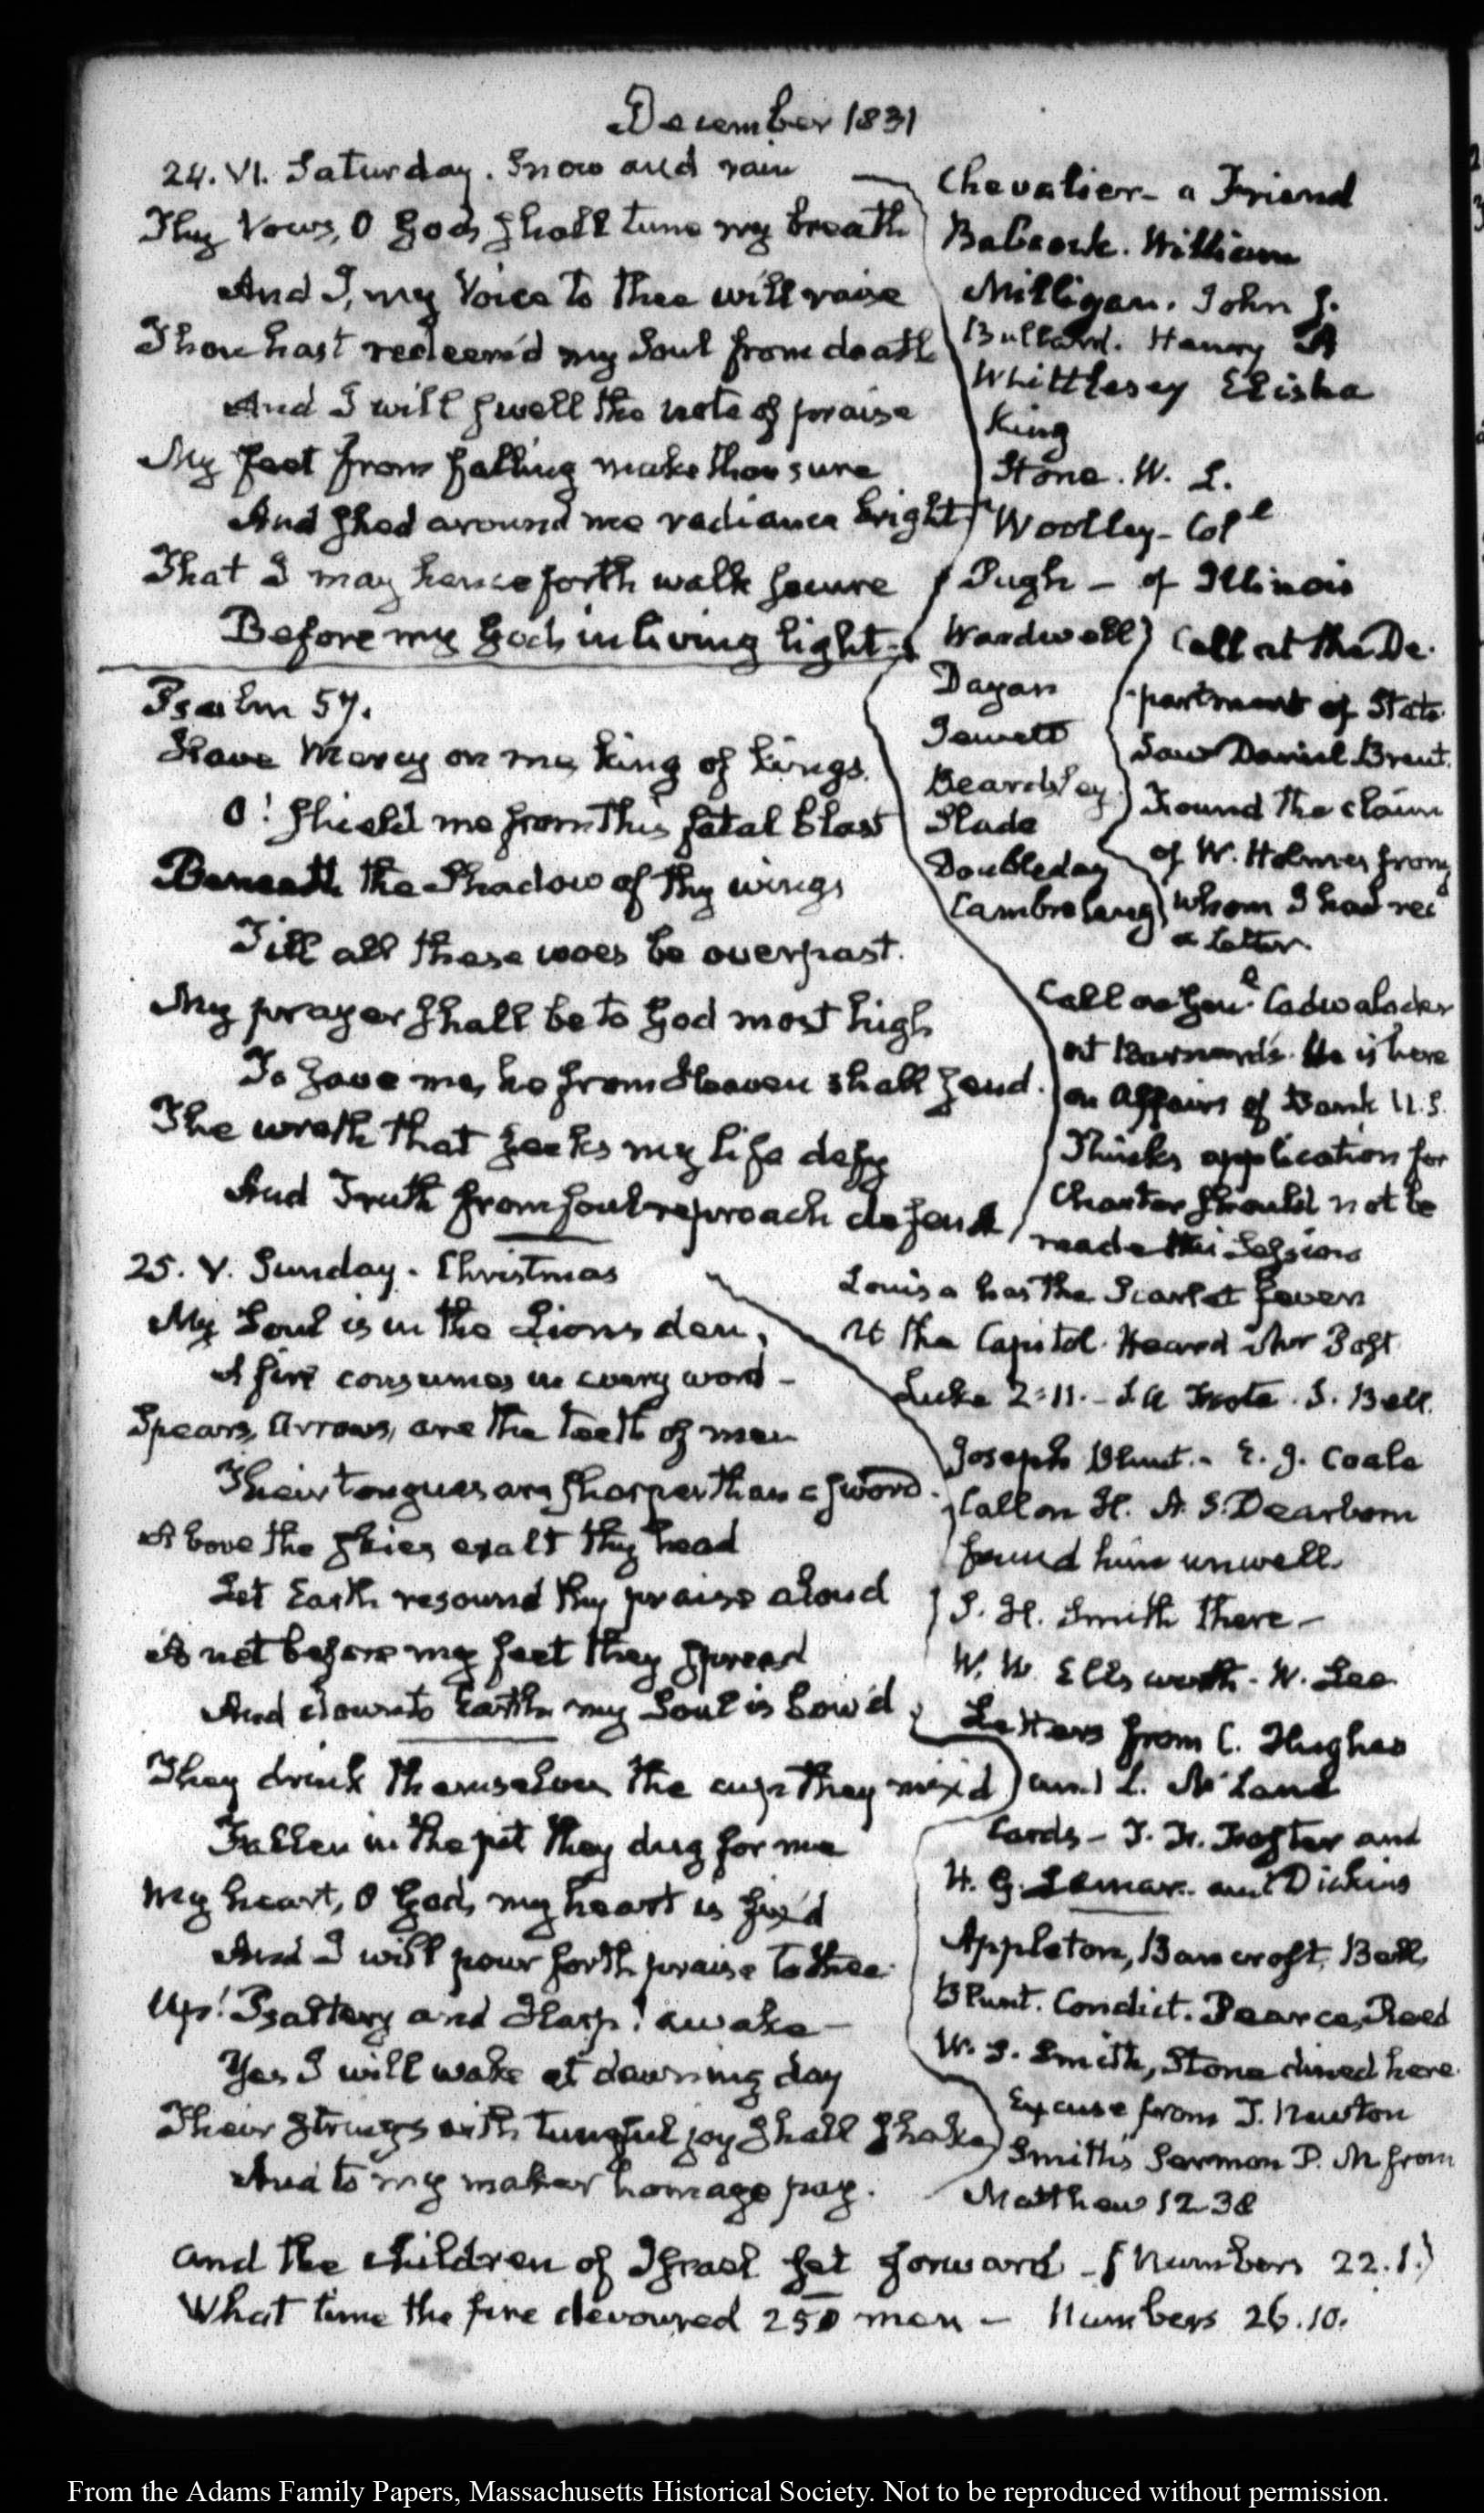 December 1831
24. VI. Saturday. Snow and rain
Thy Vows, O God, shall tune my breath
And I, my Voice to thee will raise
Thou hast redeem'd my Soul from death
And I will swell the note of praise
My feet from falling make thou sure
And shed around me radiance bright
That I may henceforth walk secure
Before my God, in living light.
Psalm 57.
Have Mercy on me, king of kings.
O! shield me from this fatal blast
Beneath the Shadow of thy wings
Till all these woes be overpast.
My prayer shall be to God most high
To save me, he from Heaven shall send.
The wrath that seeks my life defy
And Truth from foul reproach defend
Chevalier - a Friend
Babcock. William
Milligan. John J.
Bullard. Henry A
Whittlesey Elisha
King
Stone. W. L.
Woolley - Col.l
Pugh - of Illinois
Wardwell
Dayan
Jewett
Beardsley
Slade
Doubleday
Cambreleng
Call at the De-
partment of State
Saw Daniel Brent.
Found the claim
of W. Holmes from
whom I had rec'd
a Letter.
Call on Gen.l Cadwalader
at Barnard's. He is here
on Affairs of Bank U.S.
Thinks application for
Charter should not be
made this Session
25. V. Sunday. Christmas
My Soul is in the Lions den,
A fire consumes in every word -
Spears, Arrows, are the teeth of men
Their tongues are sharper than a sword.
Above the skies exalt thy head
Let Earth resound thy praise aloud
A net before my feet they spread
And down to Earth my Soul is bow'd
They drink themselves the cup they mix'd
Fallen in the pit they dug for me
My heart, O God, my heart is fix'd
And I will pour forth praise to thee.
Up! Psaltery and Harp! awake -
Yes I will wake at dawning day
Their strings with tuneful joy shall shake
And to my maker homage pay.
Louisa has the Scarlet fever
At the Capitol. Heard Mr Post
Luke 2:11. - S. Bell.
Joseph Blunt. - E. J. Coale
Call on H. A. S. Dearborn
found him unwell.
S. H. Smith there -
W. W. Ellsworth. W. Lee
Letters from C. Hughes
and L. McLane
Cards - T. F. Foster and
H. G. Lamar. and Dickins
Appleton, Bancroft, Bell,
Blunt. Condict. Pearce, Reed
W. S. Smith, Stone dined here.
Excuse from T. Newton
Smith's Sermon P. M. from
Matthew 12. 38
and the children of Israel set forward - (Numbers 22.1.)
What time the fire devoured 250 men - Numbers 26.10.
From the Adams Family Papers, Massachusetts Historical Society. Not to be reproduced without permission.